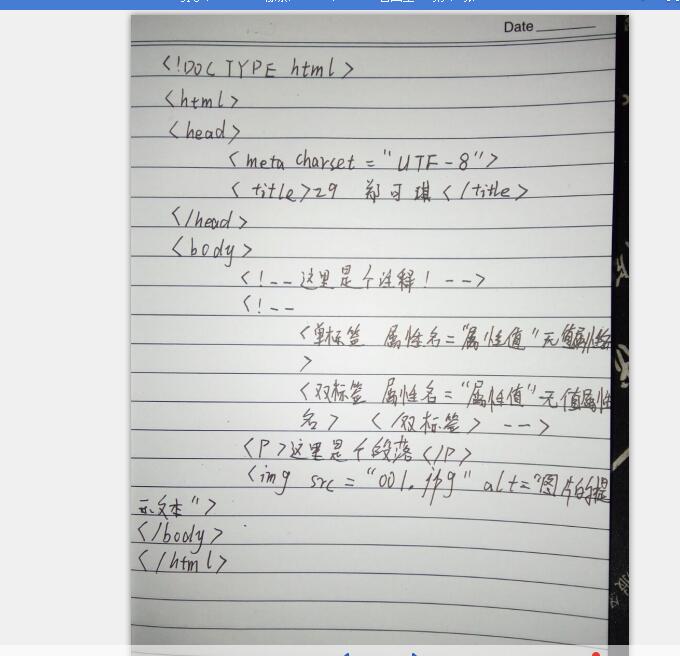 Date
<!DOCTYPE html>
<html>
<head>
<meta charset="UTF-8">
<title>29 郑可琪</title>
</head>
<body>
<!--这里是个注释!-->
<!--
<单标签 属性名="属性值"无值属性名
>
<双标签 属性名="属性值"无值属性
名> </双标签> -->
<P>这里是个段落</P>
<img src="001.jpg" alt="图片的提
示文本">
</body>
</html>